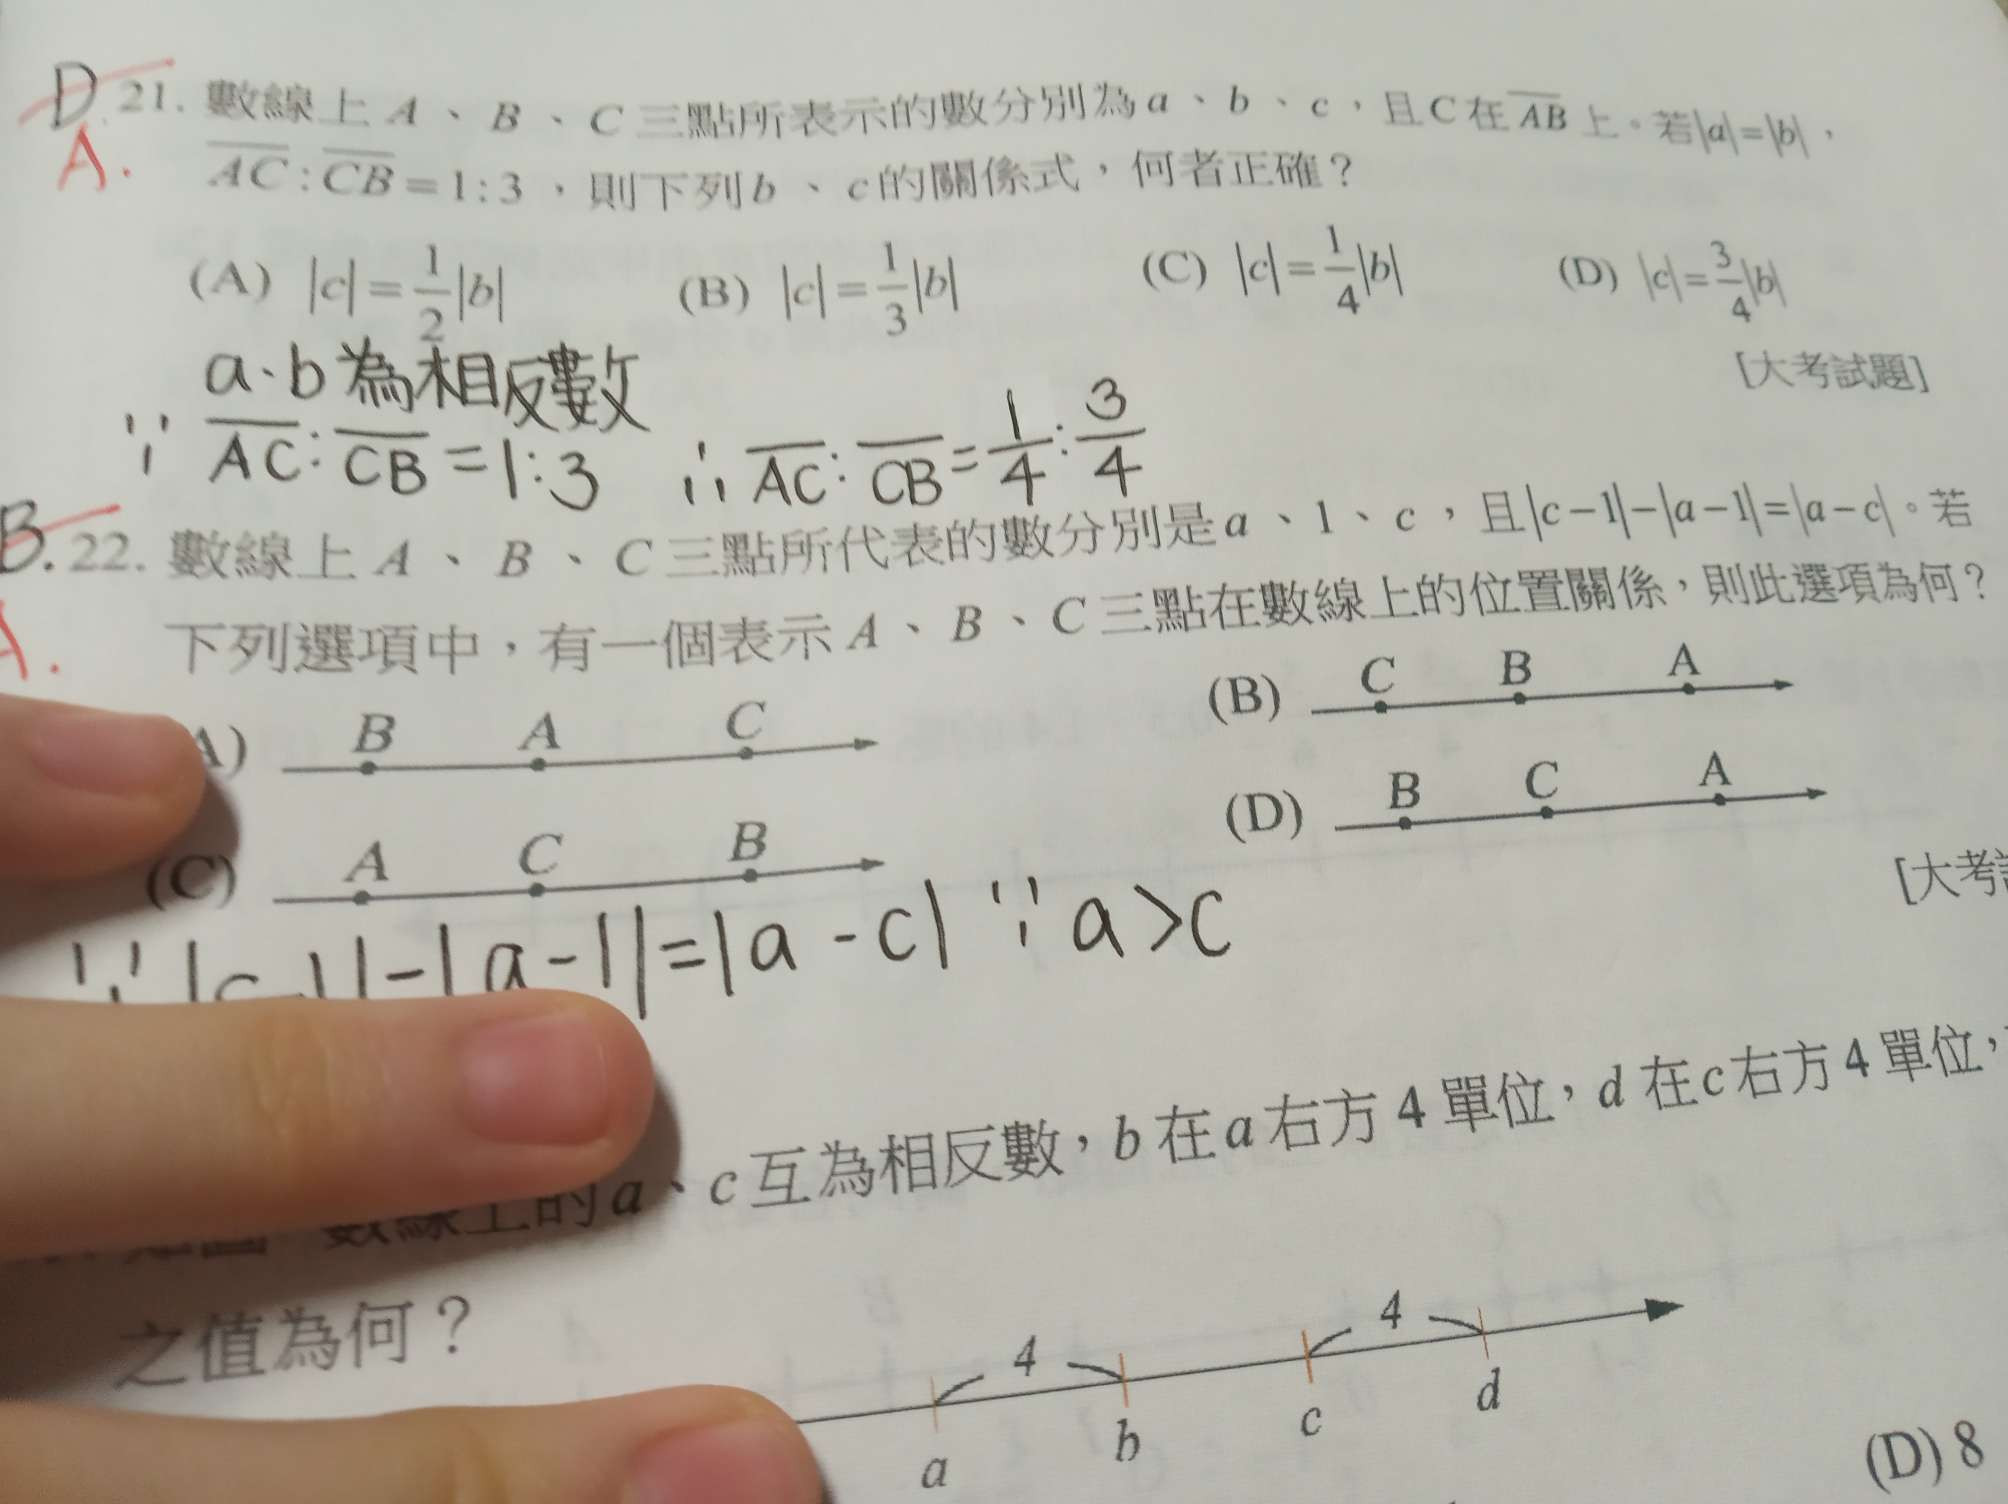 D.
A.
21. 數線上 A、B、C 三點所表示的數分別為 a、b、c,且 C 在 AB 上。若|a|=|b|,
AC:CB=1:3,則下列 b、c 的關係式,何者正確?
(A) |c|=1/2|b| (B) |c|=1/3|b| (C) |c|=1/4|b| (D) |c|=3/4|b|
[大考試題]
a.b為相反數
∵ AC:CB=1:3 ∴ AC:CB=1/4:3/4
B.
A.
22. 數線上 A、B、C 三點所代表的數分別是 a、1、c,且|c-1|-|a-1|=|a-c|。若
下列選項中,有一個表示 A、B、C 三點在數線上的位置關係,則此選項為何?
A) B A C
(B) C B A
(C) A C B
(D) B C A
[大考
∵ |c-1|-|a-1|=|a-c| ∵ a>c
數線上的 a、c 互為相反數,b 在 a 右方 4 單位,d 在 c 右方 4 單位,
之值為何?
4 4
a b c d
(D) 8